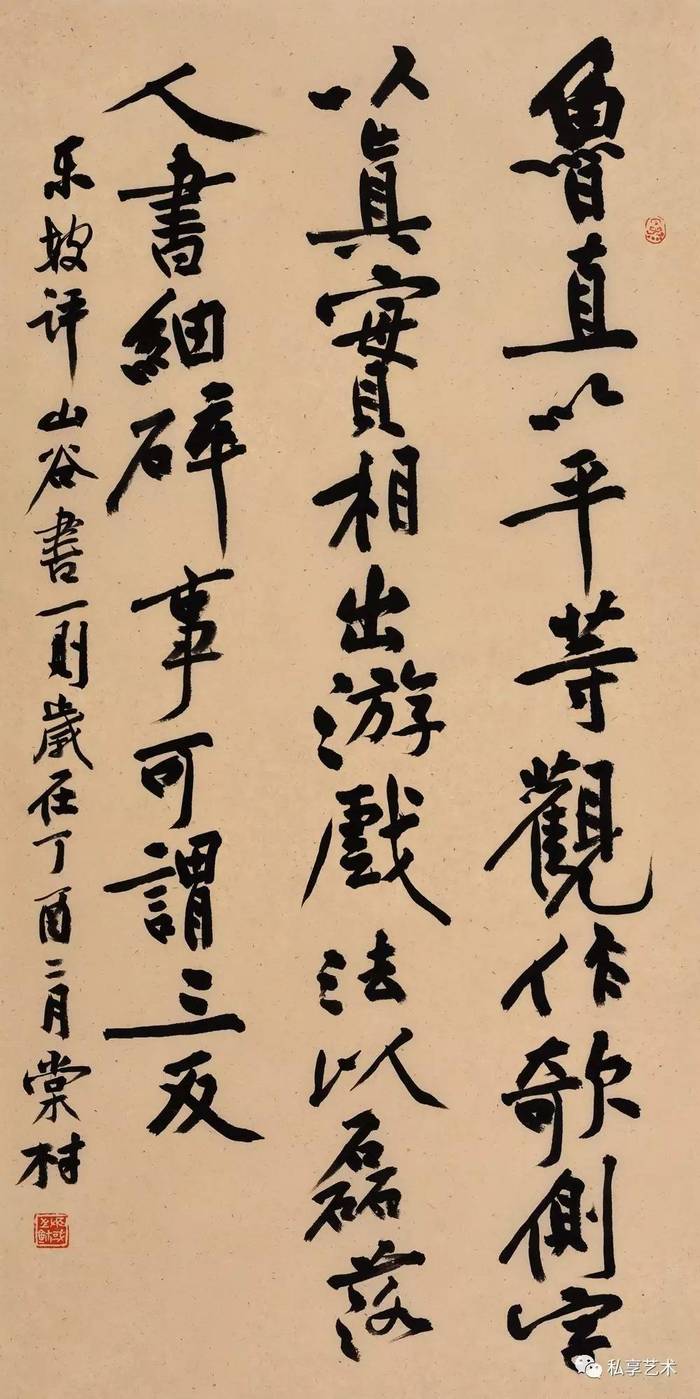 魯直以平等觀作欹側字
以真實相出游戲法以磊落
人書細碎事可謂三反
东坡评山谷書一則歲在丁酉二月棠村
私享艺术